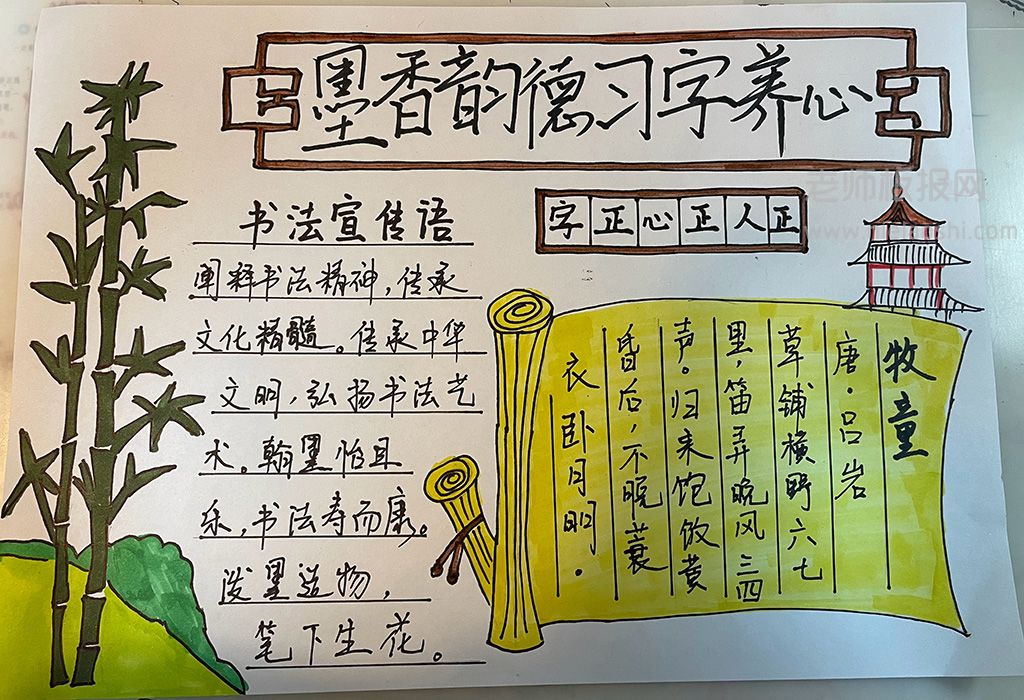 墨香韵德习字养心
老师板报网
字正心正人正
书法宣传语
阐释书法精神，传承
文化精髓。传承中华
文明，弘扬书法艺
术。翰墨怡且
乐，书法寿而康。
泼墨造物，
笔下生花。
牧童
唐·吕岩
草铺横野六七
里，笛弄晚风三四
声。归来饱饭黄
昏后，不脱蓑
衣卧月明.